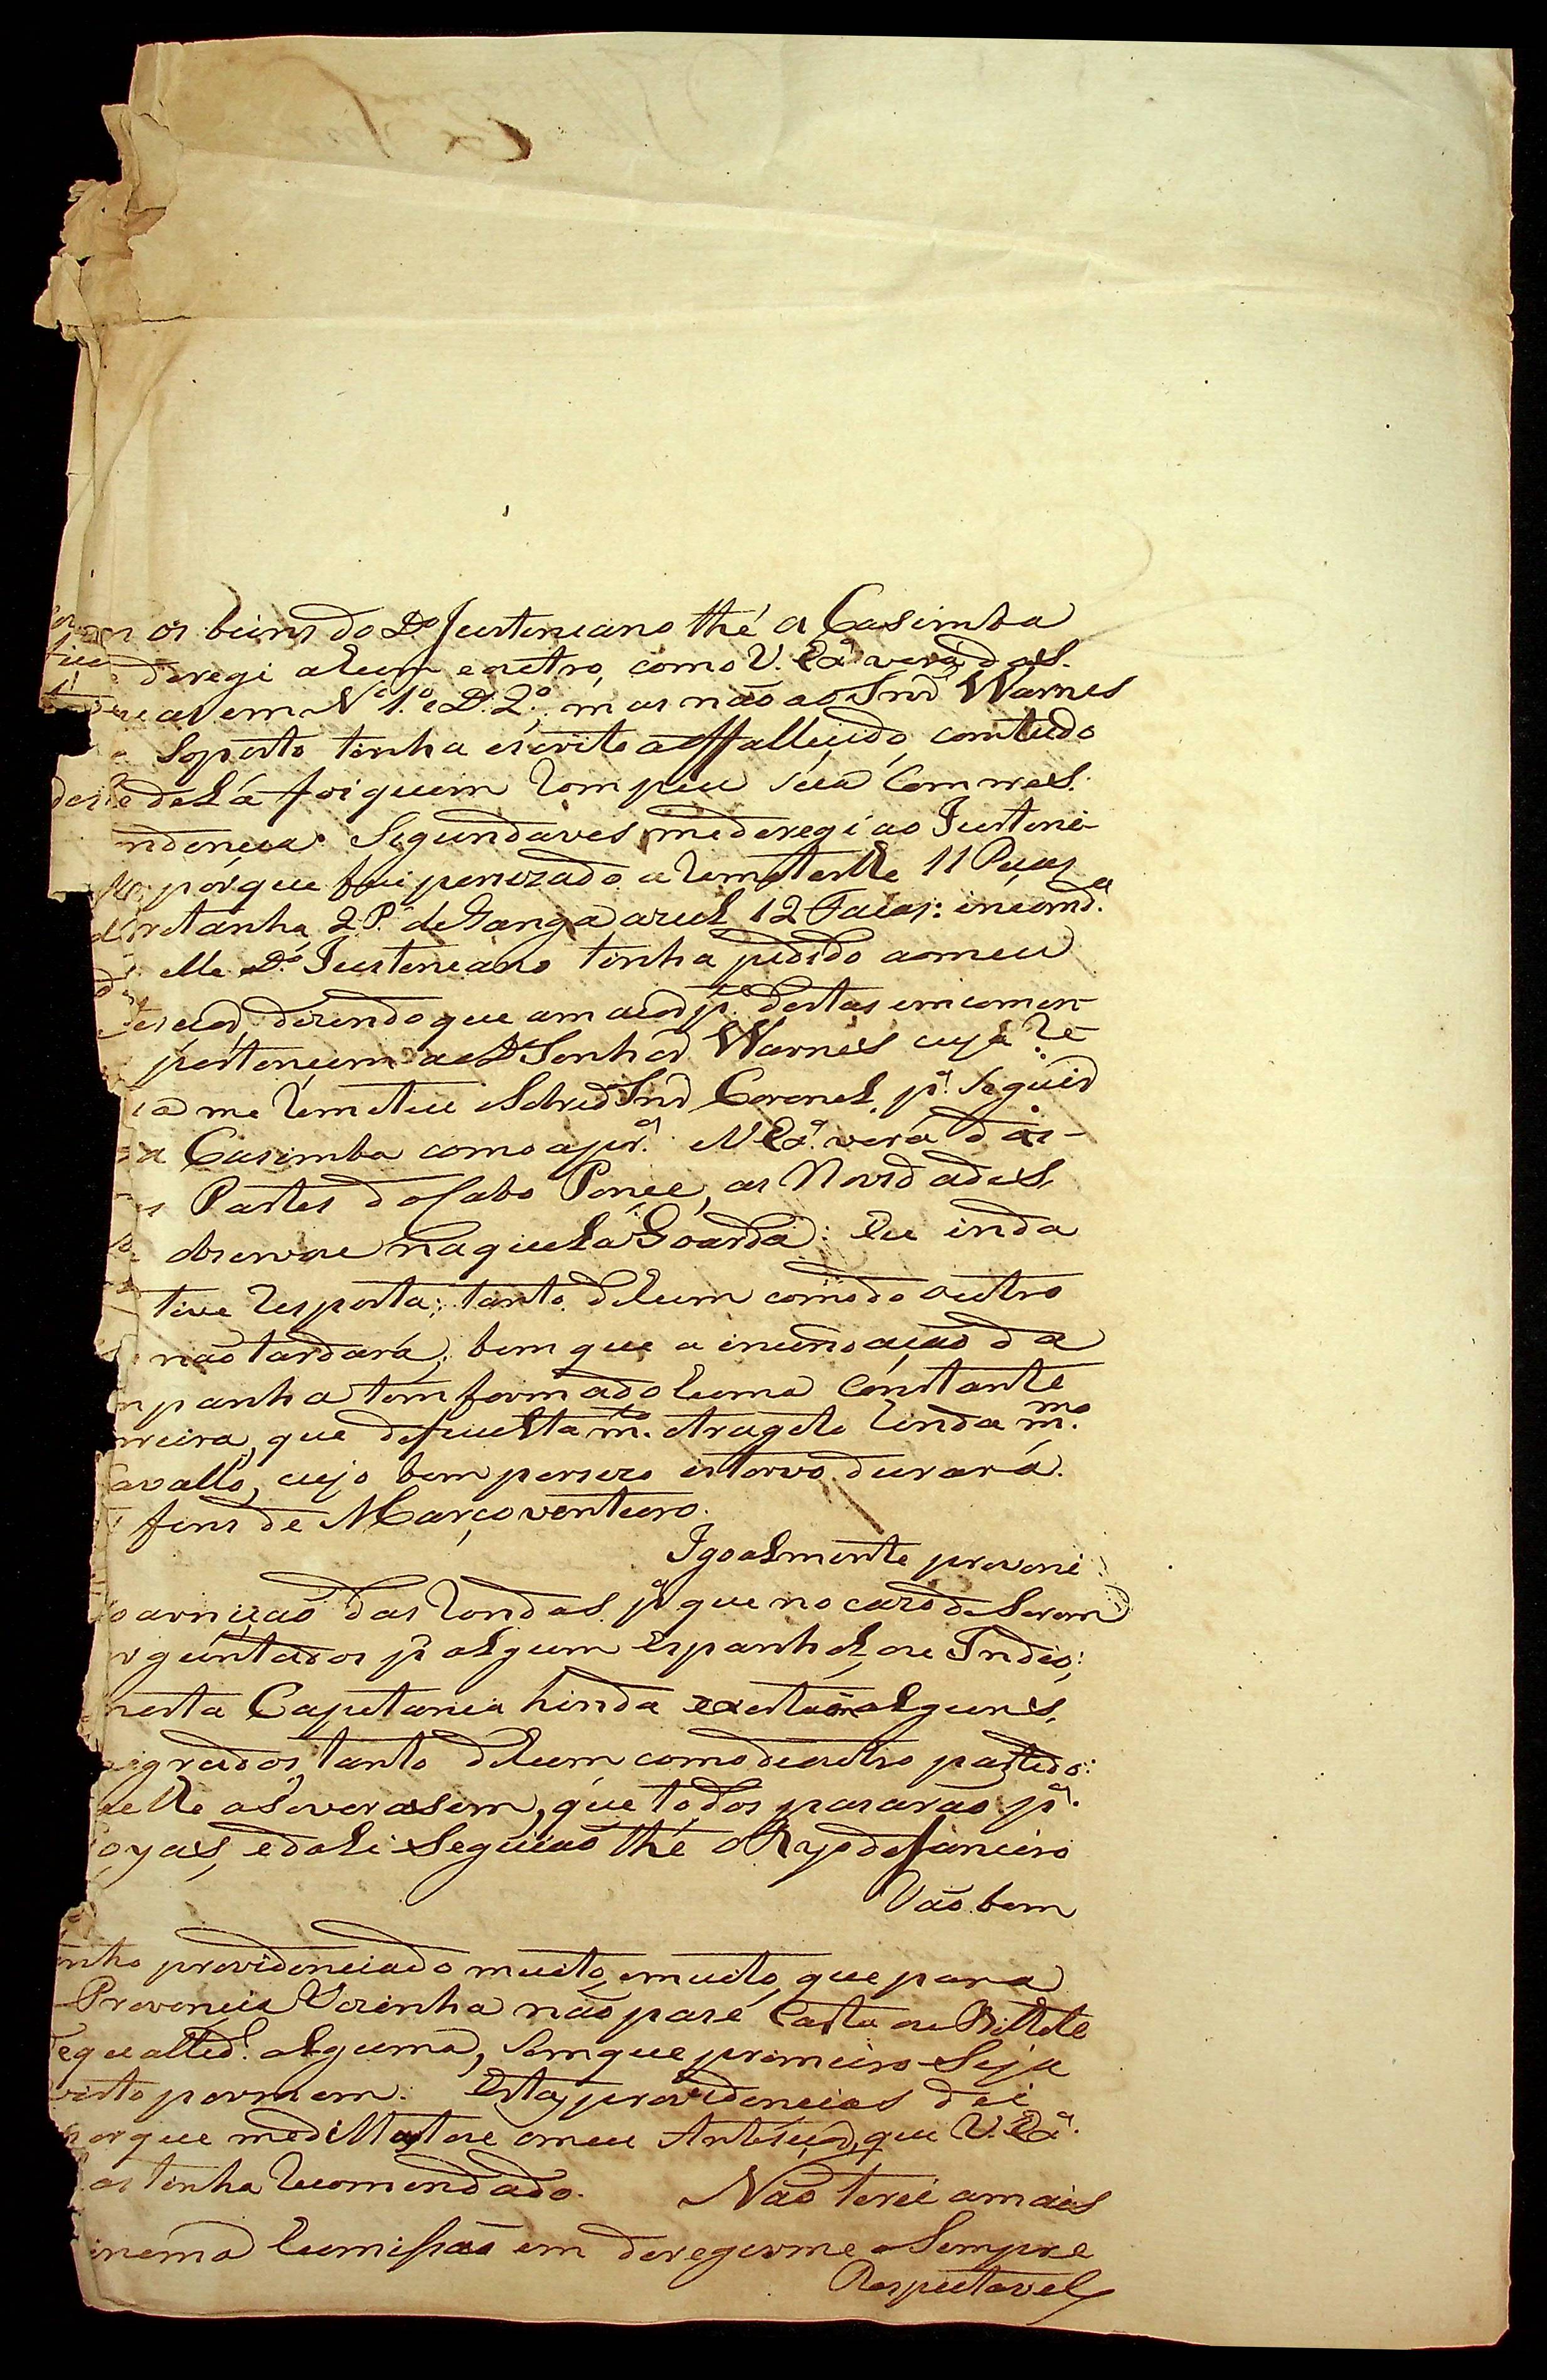 os beins do D.º Justeniano thé a Casimba
deregi a hum e outro, como V. Exª verá das
em Nº 1.º e D. 2.º, mas não ao Snr Warnes
Soposto tinha escrito a esse alleivido, comtudo
de lá foi quem rompeu sua Corres
ndencia. Segunda ves me deregi ao Justeni
porque fui percizado a remeterlhe 11 Peças
Bretanha, 2 P.s de Ganga azul, 12 Facas: incomd.ª
elle D.º Justeniano tinha pedido ao meu
dizendo que a maior p.te destas emcomen
pertencem ao D.º Senhor Warnes cuja Re
me remeteu o Snr Coronel, p.ª seguir
a Casimba como a pr.ª e V Exª. verá das
Partes do Cabo Ponce, as Novidades
observou naquela Goarda: Eu inda
tive resposta; tanto de hum como do outro
não tardará; bem que a inundação da
mpanha tem formado huma Constante
rreira, que deficulta m.to o trageto inda m.mo
Cavallo, cujo bem percizo estorvo durará
fins de Março venturo.
Igoalmente preveni
oarnição das rondas, p.ª que no cazo de Serem
rguntados p.r algum Espanhol, ou Indio;
nesta Capetania hinda existão alguns,
migrados, tanto de hum como de outro partido:
lhe aseverasem, que todos pasarão p.ª
oyas, e dali Seguião thé o Ryo de Janeiro
Vão bem
enho providenciado muito, e muito, que para
Provencia Vezinha não pase Carta ou Bilhete
e qualid.e alguma, Sem que primeiro Seja
visto por mim. Estas providencias dei
porque me dise o meu Antesesor, que V. Exª.
as tinha recomendado. Não terei a mais
inema Remissão em deregirme a Sempre
Respeitavel